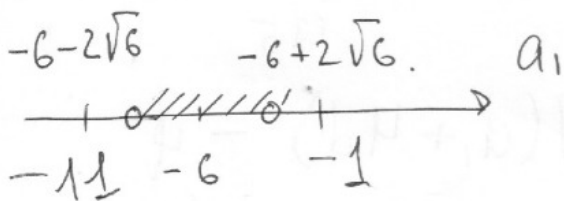 -6-2√6 -6+2√6. a₁
-11 -6 -1